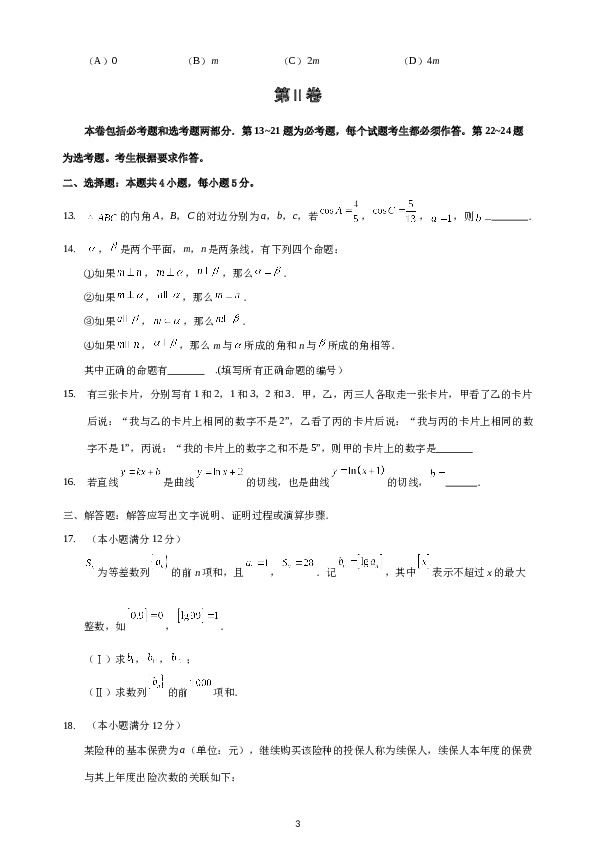 （A）0 （B）m （C）2m （D）4m
第 II 卷
本卷包括必考题和选考题两部分．第 13~21 题为必考题，每个试题考生都必须作答。第 22~24 题
为选考题。考生根据要求作答。
二、选择题：本题共 4 小题，每小题 5 分。
13. △ABC 的内角 A，B，C 的对边分别为 a，b，c，若 cos A = 4/5，cos C = 5/13，a = 1，则 b = ______．
14. α，β 是两个平面，m，n 是两条线，有下列四个命题：
①如果 m⊥n，m⊥α，n∥β，那么
②如果 m⊥α，n∥α，那么
③如果，，那么
④如果 m∥n，α∥β，那么 m 与 α 所成的角和 n 与 β 所成的角相等．
其中正确的命题有______．(填写所有正确命题的编号）
15. 有三张卡片，分别写有 1 和 2，1 和 3，2 和 3．甲，乙，丙三人各取走一张卡片，甲看了乙的卡片
后说：“我与乙的卡片上相同的数字不是 2”，乙看了丙的卡片后说：“我与丙的卡片上相同的数
字不是 1”，丙说：“我的卡片上的数字之和不是 5”，则甲的卡片上的数字是______
16. 若直线 y = kx + b 是曲线 y = ln x + 2 的切线，也是曲线 y = ln(x + 1) 的切线，b = ______．
三、解答题：解答应写出文字说明、证明过程或演算步骤．
17. （本小题满分 12 分）
Sₙ 为等差数列 {aₙ} 的前 n 项和，且 a₁=1，S₇=28．记 bₙ=[lg aₙ]，其中 [x] 表示不超过 x 的最大
整数，如 [0.9]=0，[lg99]=1．
（Ⅰ）求 b₁，b₁₁，；
（Ⅱ）求数列 {bₙ} 的前 1000 项和．
18. （本小题满分 12 分）
某险种的基本保费为 a（单位：元），继续购买该险种的投保人称为续保人，续保人本年度的保费
与其上年度出险次数的关联如下：
3